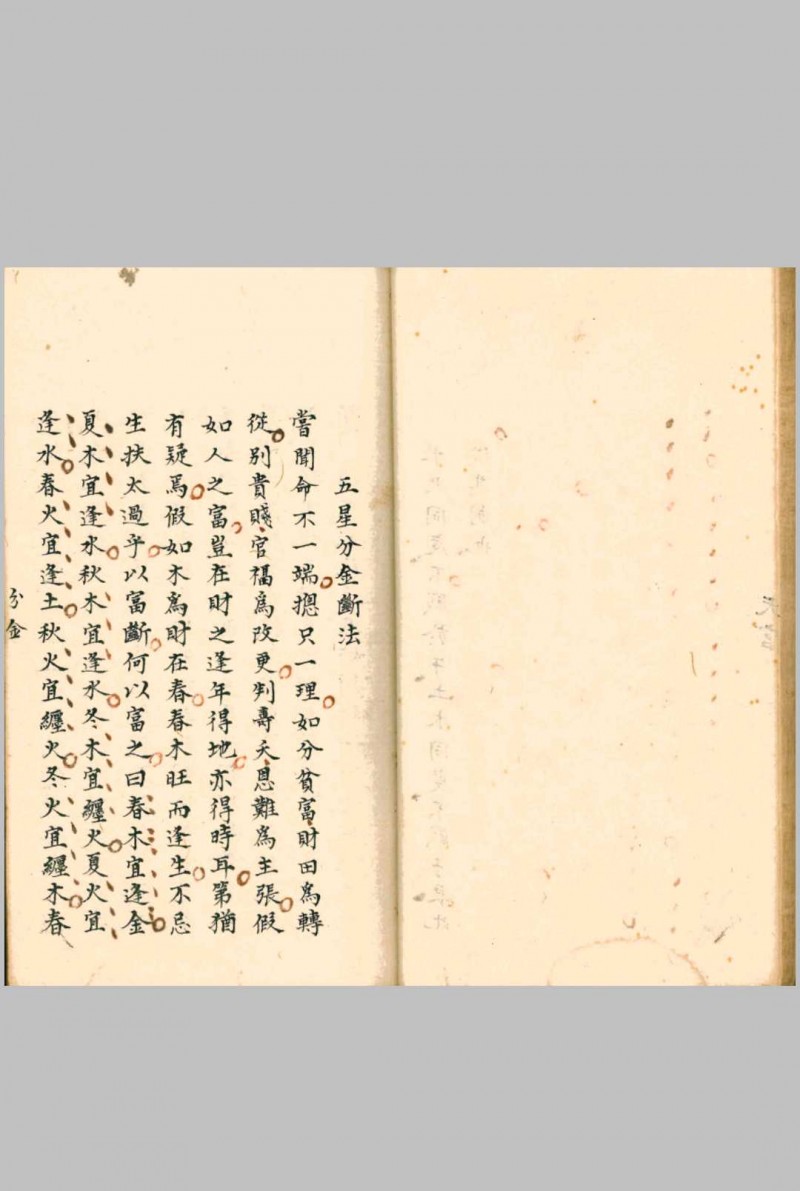 五星分金斷法
嘗聞命不一端摠只一理如分貧富財田爲轉
從別貴賤官福爲改更判壽夭恩難爲主張假
如人之富豈在財之逢年得地亦得時耳第猶
有疑焉假如木爲財在春春木旺而逢生不忌
生扶太過乎以富斷何以富之曰春木宜逢金
夏木宜逢水秋木宜逢水冬木宜纏火夏火宜
逢水春火宜逢土秋火宜纏火冬火宜纏木春
分金